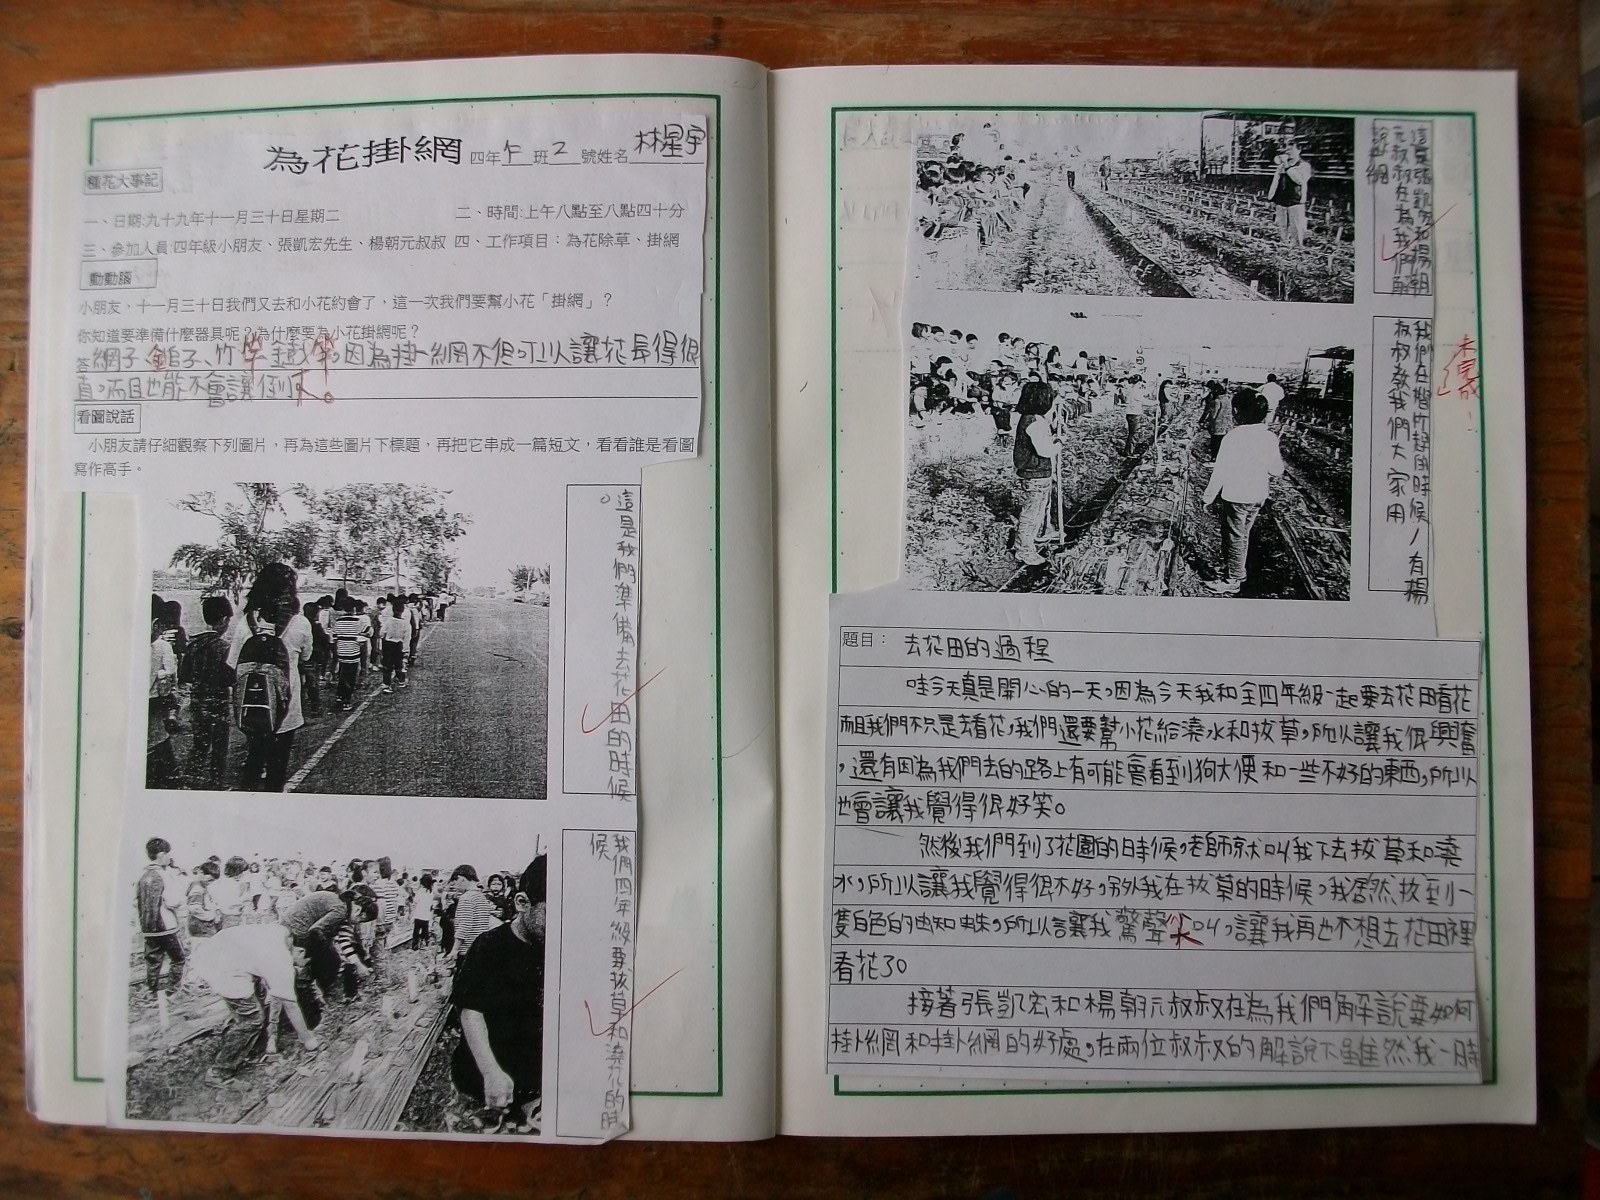 為花掛網 四年仁班2號姓名林星宇
種花大事記
一、日期:九十九年十一月三十日星期二 二、時間:上午八點至八點四十分
三、參加人員:四年級小朋友、張凱宏先生、楊朝元叔叔 四、工作項目：為花除草、掛網
動動腦
小朋友，十一月三十日我們又去和小花約會了，這一次我們要幫小花「掛網」？
你知道要準備什麼器具呢？為什麼要為小花掛網呢？
答網子、子、竹竿、因為掛網不但可以讓花長得很
直，而且也能不會讓倒下。
看圖說話
小朋友請仔細觀察下列圖片，再為這些圖片下標題，再把它串成一篇短文，看看誰是看圖
寫作高手。
這是我們準備去花田的時候
。
我們四年級要拔草和澆花的時
候
這是張凱宏和楊朝
元叔叔在為我們解
說掛網
我們在插竹竿的時候，有楊
叔叔教我們大家用
未完成！
題目： 去花田的過程
哇今天真是開心的一天，因為今天我和全四年級一起要去花田看花
而且我們不只是去看花，我們還要幫小花給澆水和拔草，所以讓我很興奮
，還有因為我們去的路上有可能會看到狗大便和一些不好的東西，所以
也會讓我覺得很好笑。
然後我們到了花園的時候，老師就叫我下去拔草和澆
水，所以讓我覺得很不好，另外我在拔草的時候，我居然拔到一
隻白色的蜘蛛，所以讓我驚聲尖叫，讓我再也不想去花田裡
看花了。
接著張凱宏和楊朝元叔叔在為我們解說要如何
掛網和掛網的好處，在兩位叔叔的解說下雖然我一時